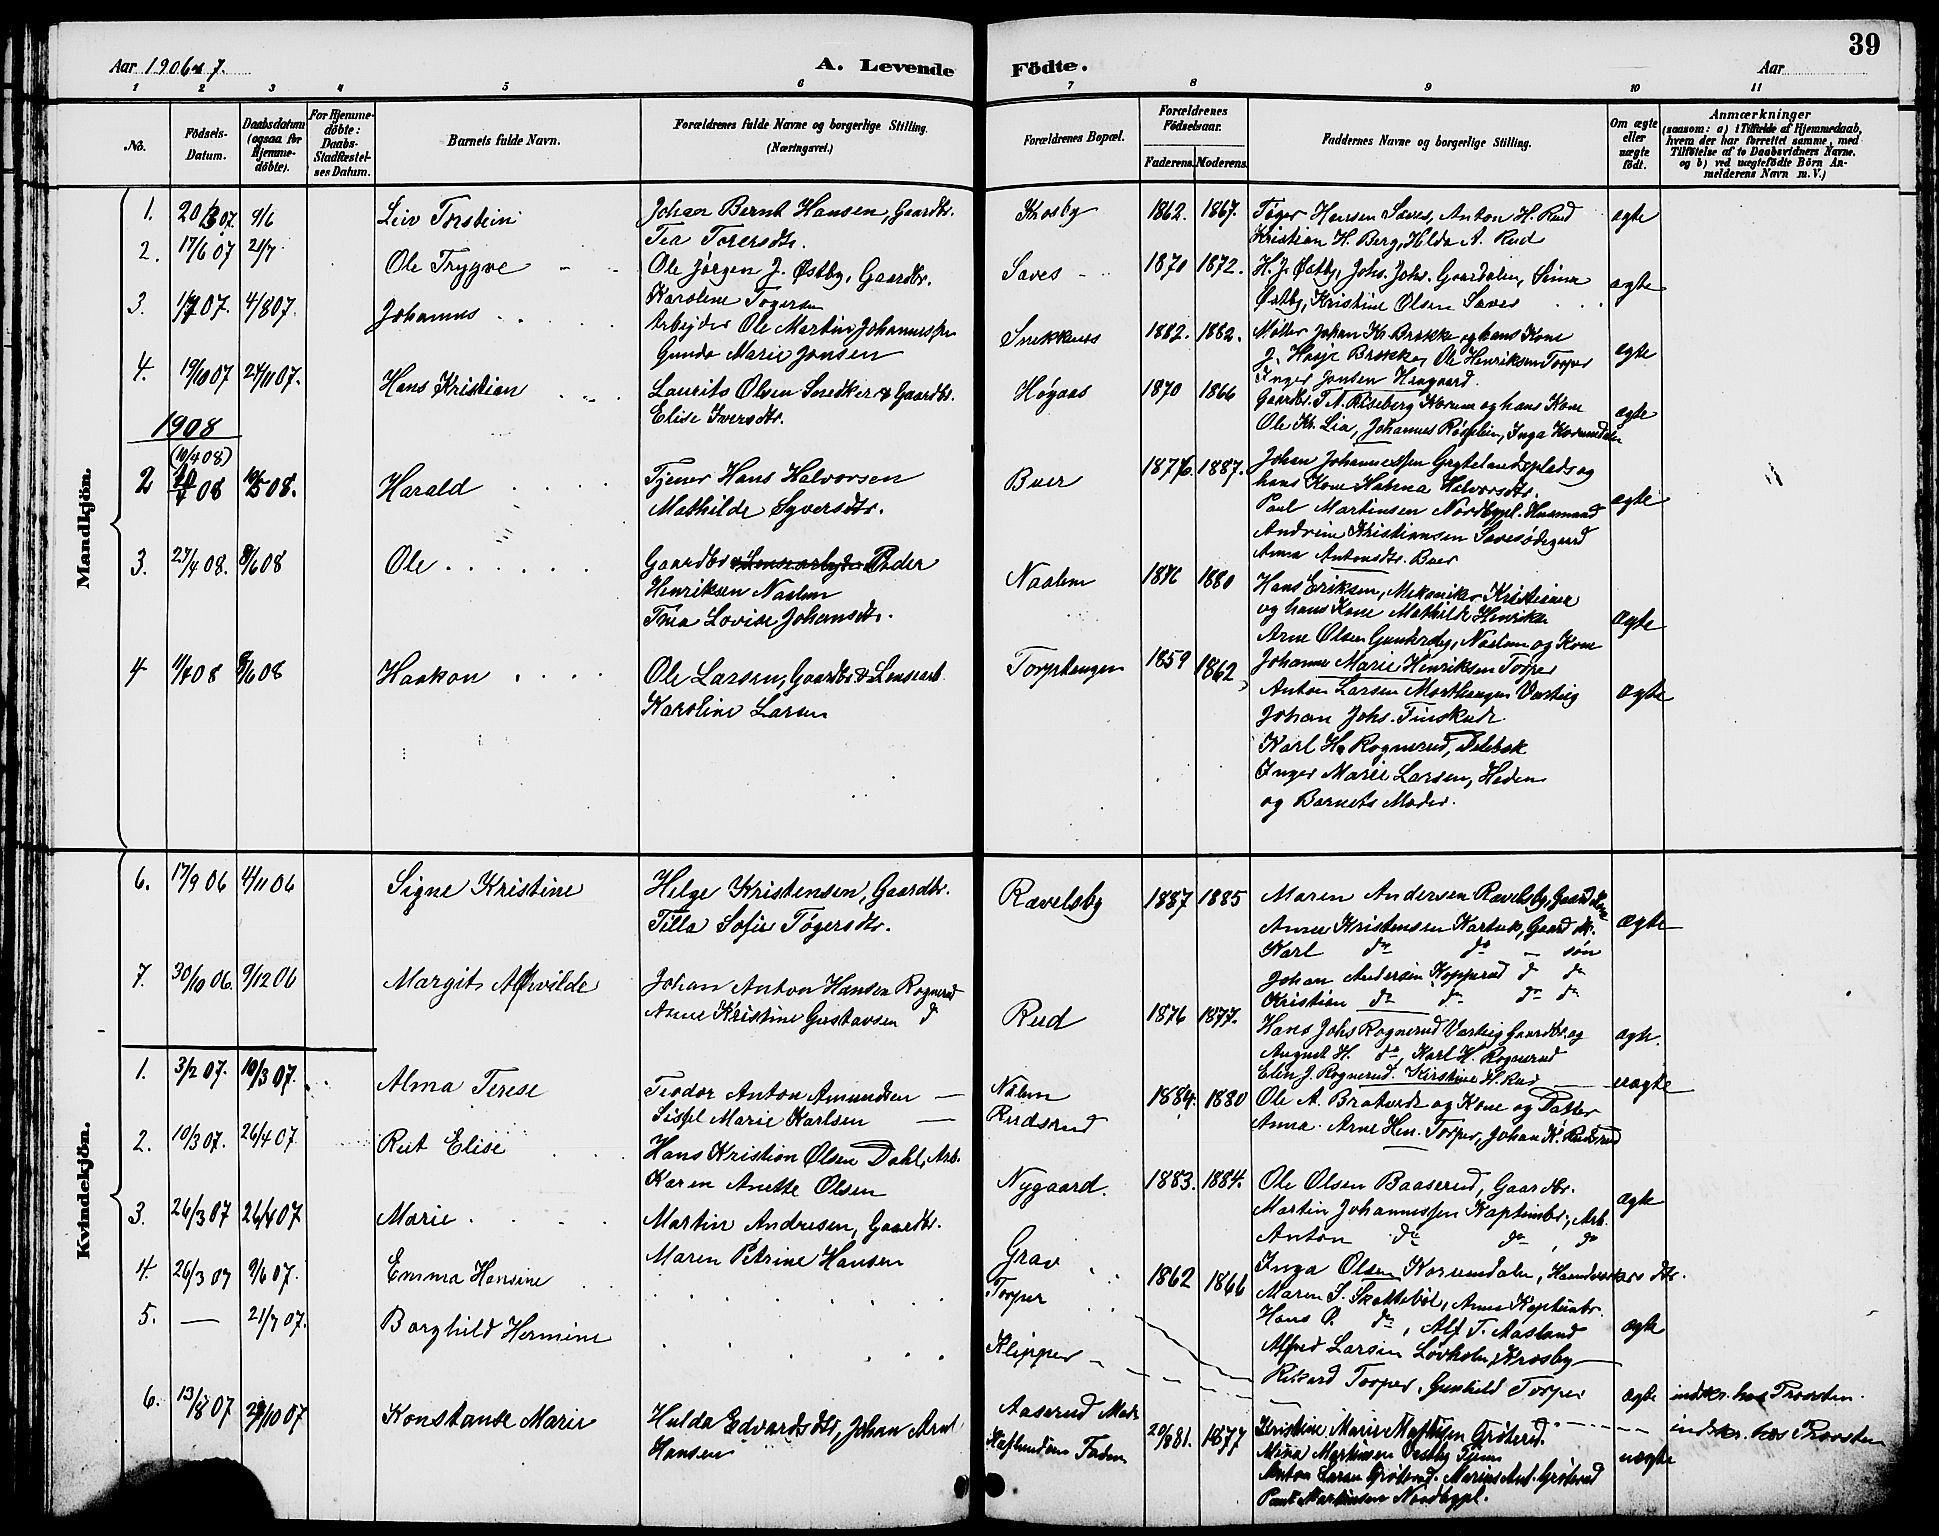 39
Aar 1906 & 7.
A. Levende Födte.
Aar
1 2 3 4 5 6 7 8 9 10 11
No.
Födsels-Datum.
Daabsdatum (ogsaa for Hjemme-döbte).
For Hjemme-döbte: Daabs-Stadfæstel-ses Datum.
Barnets fulde Navn.
Forældrenes fulde Navne og borgerlige Stilling.
(Næringsvei.)
Forældrenes Bopæl.
Forældrenes Födselsaar.
Faderens. Moderens.
Faddernes Navne og borgerlige Stilling.
Om ægte eller uægte födt.
Anmærkninger
(saasom: a) i Tilfælde af Hjemmedaab,
hvem der har forrettet samme, med
Tilföielse af to Daabsvidners Navne,
og b) ved uægtefödte Börn An-
melderens Navn m. V.)
Mandkjön.
1. 20/3 07. 9/6 Liv Torstein Johan Bernt Hansen, Gaardbr. Krosby 1862. 1867. Tøger Hansen Saves, Anton H. Rud ægte
Tea Torersdtr. Kristian H. Berg, Hilda A. Rud
2. 17/6 07 21/7 Ole Trygve Ole Jørgen J. Østby, Gaardbr. Saves 1870 1872. H. J. Østby, Johs. Johs. Gaardalen, Sina ægte
Karoline Togersen Østby, Kristine Olsen Saves
3. 1/7 07. 4/8 07. Johannes Arbejder Ole Martin Johannessen Snekkenes 1882. 1882. Møller Johan Kr. Brekke og hans Kone ægte
Gunda Marie Jonsen Ole Henriksen Torper
Inger Jonsen Haagaard.
4. 19/10 07 24/11 07. Hans Kristian Laurits Olsen Snedker & Gaardbr. Høgaas 1870 1866 Gaardbr. Riseberg Korum og hans Kone ægte
Elise Iversdtr. Ole Kr. Lia, Johannes Inga Korumdalen
1908
(10/4 08)
2 08 10/5 08. Harald Tjener Hans Halvorsen Buer 1876. 1887. Johan Johannessen Grytelandsplads og ægte
Mathilde Syversdtr. hans Kone Helena Halvorsdtr.
Paul Martinsen Nordbypl. Husmand
Andrine Kristiansen Savesødegaard
Anna Antonsdtr. Buer
3. 27/4 08. 8/6 08 Ole Gaardbr Peder Naalum 1876 1880 Hans Eriksen, Mekaniker Kristiania ægte
Henriksen Naalum og hans Kone Mathilde Henriksen
Tina Lovise Johansdtr. Arne Olsen Naalum og Kone
4 08 8/6 08 Haakon Ole Larsen, Gaardbr & Lensearb. Torphaugen 1859 1862 Johanne Marie Henriksen Torper ægte
Karoline Larsen Anton Larsen Varteig
Johan Johs. Finskude
Karl H. Rognerud, Delebæk
Inger Marie Larsen, Heden
og Barnets Moder.
Kvindekjön.
6. 17/9 06 4/11 06 Signe Kristine Helge Kristensen, Gaardbr. Rævelsby 1887 1885 Maren Andersen Rævelsby, Gaard Kone ægte
Tilla Sofie Tøgersdtr. Anne Kristensen Gaard K.
Karl do do - søn
Johan Andersen Kopperud do do
Kristian do do do do
7. 30/10 06. 9/12 06 Margit Alfhilde Johan Anton Hansen Rognerud Rud 1876 1877. Hans Johs Rognerud Varteig Gaardbr. og ægte.
Anne Kristine Gustavsen d August H. do, Karl H. Rognerud
Elin J. Rognerud. Kirstine H. Rud
1. 3/2 07. 10/3 07. Alma Terese Teodor Anton Amundsen Nalum 1884. 1880 Ole A. Braterud og Kone og Datter uægte
Sissel Marie Karlsen Rudsrud Anna. Arne Hen. Torper, Johan K. Rudsrud
2. 10/3 07. 26/4 07 Rut Elise Hans Kristian Olsen Dahl, Arb. Nygaard. 1883. 1884. Ole Olsen Baaserud, Gaardbr. ægte
Karen Anette Olsen Martin Johannessen Kapteinbr., Arb.
Anton do do, do
3. 26/3 07 26/4 07 Marie Martin Andresen, Gaardbr. Grav 1862 1866 Inga Olsen Korumdalen, Haandværkers dtr. ægte
Maren Petrine Hansen Maren S. Skottebøl, Anne Kapteinbr.
Hans O. do, Alf T. Aasland
Alfred Larsen Løvholm, Krosby
4. 26/3 07 9/6 07. Emma Hansine Torper Rikard Torper, Gunhild Torper ægte indskr. hos Provsten
5. — 21/7 07. Borghild Hermine Klipper indskr. hos Provsten
6. 13/8 07 10 07 Konstanse Marie Hulda Edvardsdtr, Johan Arnt Aaserud Moder 81. 1877 Kristine Marie Mathisen Grøterud uægte
Hansen Faderen Mina Martinsen Tjener
Anton Larsen Grøterud. Marius Ant. Grøterud
Paul Martinsen Nordbypl.